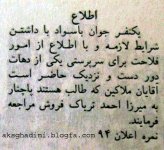 اطلاع
یکنفر جوان باسواد با داشتن
شرایط لازمه و با اطلاع از امور
فلاحت برای سرپرستی یکی از دهات
دور دست و نزدیک حاضر است
آقایان ملاکین که طالب هستند پاچنار
میرزا احمد تریاک فروش مراجعه
فرمایند
نمره اعلان ۹۴
aksghadimi.blogfa.com